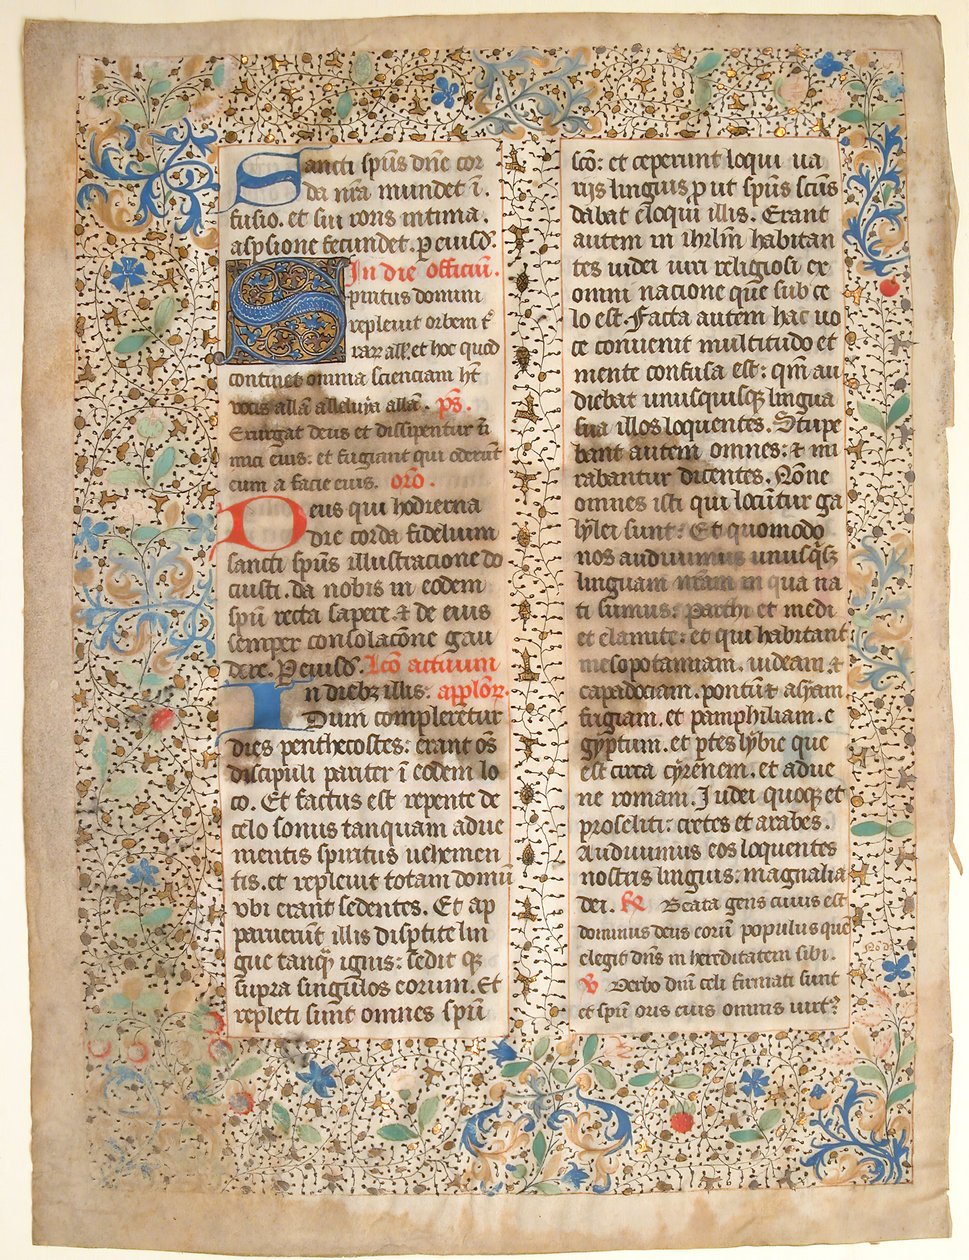 Sancti spūs dn̄e cor
da nr̄a mundet ī
fusio. et sui roris intima.
aspsione fecundet. p eiusd̄.
In die officiū.
Spiritus domini
repleuit orbem t̄
rar all̄. et hoc quod
continet omnia scienciam h̄t
vocis allā alleluya allā. ps̄.
Exurgat deus et dissipentur in̄
mici eius: et fugiant qui oderūt
eum a facie eius. orō.
Deus qui hodierna
die corda fidelium
sancti spūs illustracione do
cuisti. da nobis in eodem
spū recta sapere ⁊ de eius
semper consolacōne gau
dere. P eiusd̄. Lcō actuum
In dieb₃ illis: apploꝝ.
Dum compleretur
dies penthecostes: erant oēs
discipuli pariter ī eodem lo
co. Et factus est repente de
celo sonus tanquam adue
nientis spiritus uehemen
tis. et repleuit totam domū
vbi erant sedentes. Et ap
paruerūt illis disptite lin
gue tanq̄ ignis: sedit q₃
supra singulos eorum. Et
repleti sunt omnes spū
scō: et ceperunt loqui ua
rijs linguis p̱ ut spūs scūs
dabat eloqui illis. Erant
autem in ihrlm̄ habitan
tes iudei uiri religiosi ex
omni nacione que sub ce
lo est. Facta autem hac uo
ce conuenit multitudo et
mente confusa est: qm̄ au
diebat unusquisq₃ lingua
sua illos loquentes. Stupe
bant autem omnes: ⁊ mi
rabantur dicentes. Nōne
omnes isti qui locuntur ga
lylei sunt: Et quomodo
nos audiuimus unusq̇sq₃
linguam nr̄am in qua na
ti sumus: Parthi et medi
et elamite: et qui habitant
mesopotamiam. iudeam ⁊
capadociam. pontū ⁊ asyam
frigiam. et pamphiliam. e
gyptum. et ptes lybie que
est circa cyrenem. et adue
ne romani. Iudei quoq₃ et
proseliti: cretes et arabes.
Audiuimus eos loquentes
nostris linguis: magnalia
dei. Beata gens cuius est
dominus deus eorū populus quē
elegit dn̄s in hereditatem sibi.
℣ Verbo dnī celi firmati sunt
et spū oris eius omnis uirt⁹